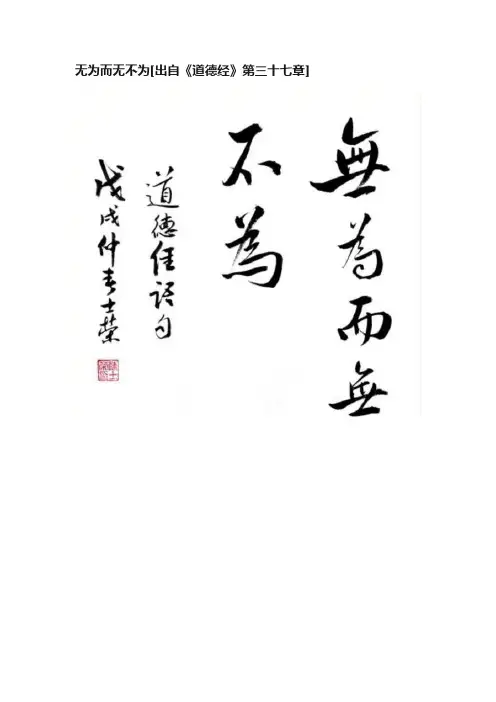 无为而无不为[出自《道德经》第三十七章]
無為而無
不為
道德経語句
戊戌仲春士榮